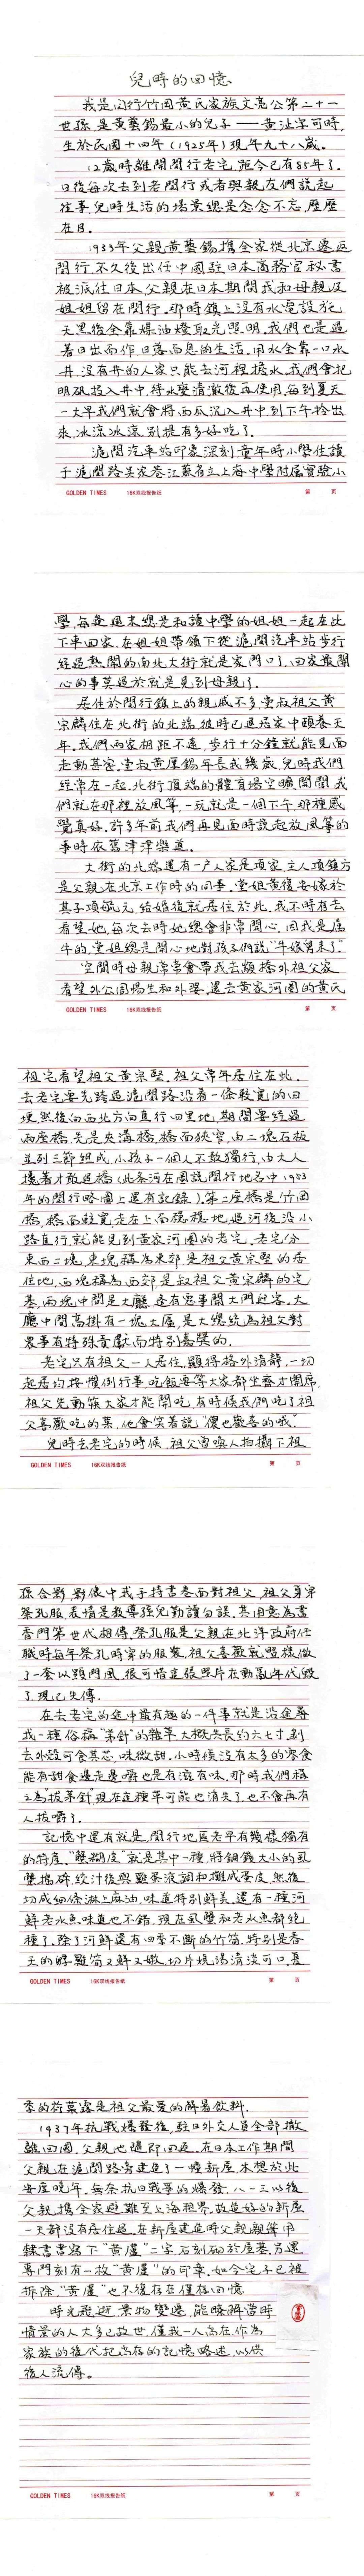 兒時的回憶
我是闵行竹岡黃氏家族文亮公第二十一
世孫,是黃藝錫最小的兒子——黃沚字可時,
生於民國十四年(1925年)現年九十八歲。
12歲時離開閔行老宅,距今已有85年了。
日後每次去到老閔行或者與親友們說起
往事,兒時生活的場景總是念念不忘,歷歷
在目。
1933年父親黃藝錫攜全家從北京遷返
閔行,不久後出任中國駐日本商務官秘書
被派往日本,父親在日本期間我和母親及
姐姐留在閔行。那時鎮上沒有水電設施
天黑後全靠煤油燈取光照明,我們也是過
著日出而作日落而息的生活。用水全靠一口水
井,沒有井的人家只能去河裡擔水,我們會把
明矾投入井中,待水變清澈後再使用,每到夏天
一大早我們就會將西瓜沉入井中到下午撈出
來,冰涼冰涼別提有多好吃了。
滬閔汽車站印象深刻,童年時小學住讀
于滬閔路吴家巷江蘇省立上海中學附屬實驗小
GOLDEN TIMES 16K双线报告纸 第 页
學,每逢週末總是和讀中學的姐姐一起在此
下車回家,在姐姐帶領下從滬閔汽車站步行
經過熱鬧的南北大街就是家門口,回家最開
心的事莫過於就是見到母親了。
居住於閔行鎮上的親戚不多,堂叔祖父黃
宗麟住在北街的北端,彼時已退居家中頤養天
年。我們兩家相距不遠,步行十分鐘就能見面
走動甚密,堂叔黃履錫年長我幾歲,兒時我們
經常在一起,北街頂端的體育場空曠開闊,我
們就在那裡放風箏,一玩就是一個下午,那種感
覺真好。許多年前我們再見面時說起放風箏的
事時依舊津津樂道。
大街的北端還有一戶人家是項家,主人項鎮方
是父親在北京工作時的同事,堂姐黃復安嫁於
其子項毓元,結婚後就居住於此,我不時有去
看望她,每次去時她總會非常開心,因我是屬
牛的,堂姐總是開心地對孩子們說"牛娘舅来了"。
空閒時母親常常會帶我去顓橋外祖父家
看望外公周揚生和外婆。還去黃家河圈的黃氏
GOLDEN TIMES 16K双线报告纸 第 页
祖宅看望祖父黃宗堅。祖父常年居住在此。
去老宅要先跨過滬閔路沿着一條較寬的田
埂,然後向西北方向直行四里地,期間要經過
兩座橋,先是夾溝橋,橋面狹窄,由二塊石板
並列三節組成,小孩子一個人不敢獨行,由大人
攙著才敢過橋(此条河在圖說閔行地名中1953
年的閔行略圖上還有記錄)。第二座橋是竹岡
橋,橋面較寬走在上面穩穩地,過河後沿小
路直行,就能見到黃家河圈的老宅。老宅分
東西二塊,東塊稱為東部,是祖父黃宗堅的居
住地,西塊稱為西部,是叔祖父黃宗麟的宅
基,兩塊中間是大廳,逢有喜事開大門迎客。大
廳中間高掛有一塊大匾,是大總統為祖父對
農事有特殊貢獻而特別嘉獎的。
老宅只有祖父一人居住,顯得格外清靜,一切
起居均按慣例行事,吃飯要等大家都坐齊才開席,
祖父先動筷大家才能開吃,有時候我們吃了祖
父喜歡吃的菜,他會笑着說"儂也歡喜的哦"。
兒時去老宅的時候,祖父曾喚人拍攝下祖
GOLDEN TIMES 16K双线报告纸 第 页
孫合影,影像中我手持書卷面對祖父,祖父身穿
祭孔服,表情是教導孫兒勤讀句誤,其用意為書
香門第世代相傳。祭孔服是父親在北洋政府任
職時每年祭孔時穿的服裝,祖父喜歡就照樣做
了一套以顯門風,很可惜這張照片在動亂年代毀
了,現已失傳。
在去老宅的途中最有趣的一件事就是沿途尋
找一種俗稱"茅針"的雜草,大概共長約六七寸,剝
去外殼可食其芯,味微甜。小時候沒有太多的零食
能有甜食邊走邊嚼也是有滋有味,那時我們稱
之為"拔茅針",現在這種草可能也消失了,也不會再有
人拔嚼了。
記憶中還有就是,閔行地區老早有幾樣獨有
的特產。"蟹糊皮"就是其中一種,將銅錢大小的風
蟹搗碎,绞汁後與雞蛋液調和攤成蛋皮,然後
切成細條淋上麻油,味道特别鮮美,還有一種河
鮮老水魚,味道也不錯,現在風蟹和老水魚都絕
種了。除了河鮮還有四季不斷的竹筍,特别是春
天的哺雞筍又鮮又嫩,切片燒湯清淡可口,夏
GOLDEN TIMES 16K双线报告纸 第 页
季的荷葉露是祖父最愛的解暑飲料。
1937年抗戰爆發後,駐日外交人員全部撤
離回國,父親也隨即回返。在日本工作期間
父親在滬閔路旁建造了一幢新屋,本想於此
安度晚年,無奈抗日戰爭的爆發,八一三以後
父親攜全家避難至上海租界,故造好的新屋
一天都没有居住過。在新屋建造時父親親筆用
隸書書寫下"黃廬"二字,石刻砌於屋基,另還
專門刻有一枚"黃廬"的印章,如今宅子已被
拆除,"黃廬"也不復存在僅存回憶。
時光飛逝,景物變遷,能瞭解當時
情景的人大多已故世,僅我一人尚在,作為
家族的後代把尚存的記憶略述,以供
後人流傳。
GOLDEN TIMES 16K双线报告纸 第 页